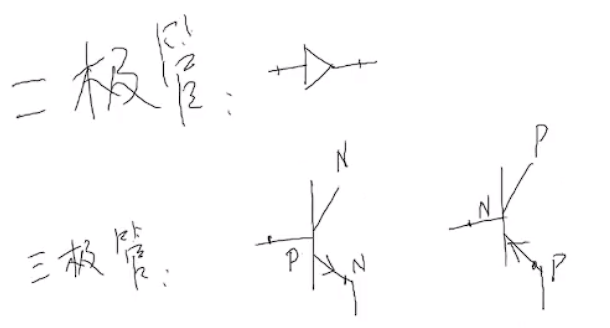 二极管：
N P
三极管： P N N P